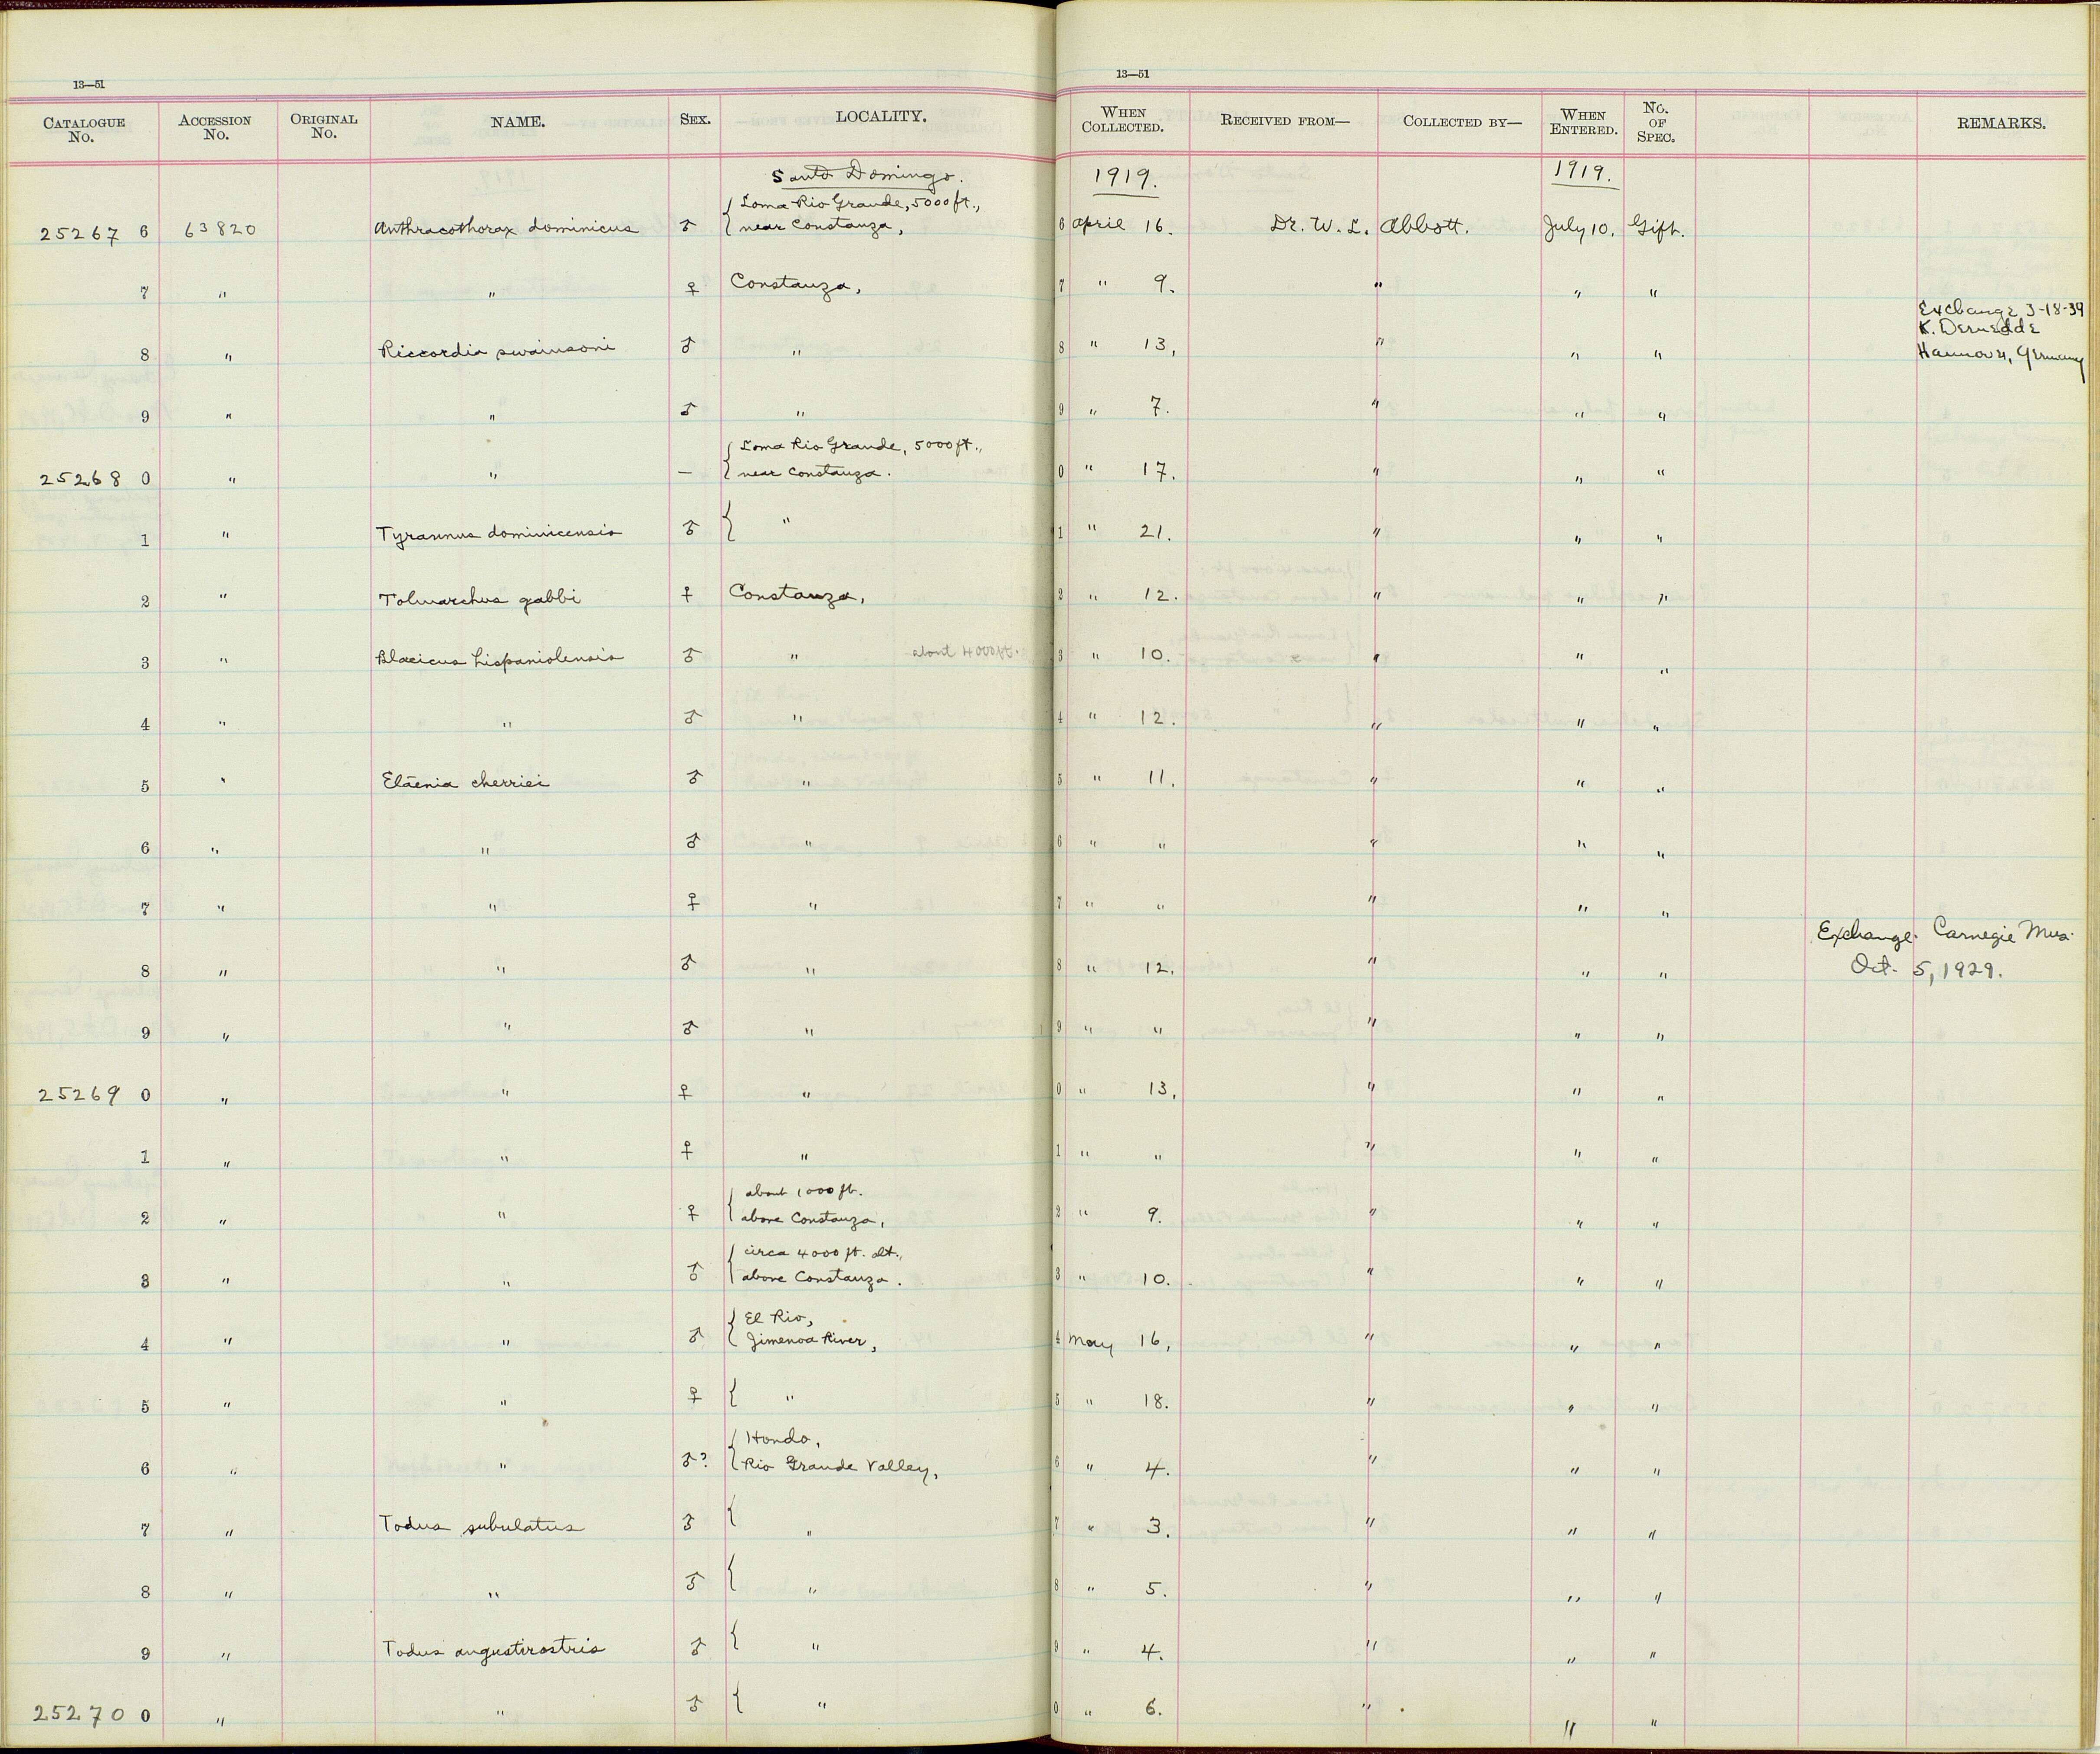 13—51
13—51
CATALOGUE No. ACCESSION No. ORIGINAL No. NAME. SEX. LOCALITY. WHEN COLLECTED. RECEIVED FROM— COLLECTED BY— WHEN ENTERED. No. OF SPEC. REMARKS.
Santo Domingo. 1919. 1919.
{ Loma Rio Grande, 5000 ft.,
25267 6 63820 Anthracothorax dominicus ♂ near Constanza, 6 April 16. Dr. W. L. Abbott. July 10. Gift.
7 " " ♀ Constanza, 7 " 9. " " "
Exchange 3-18-39
K. Dernedde
8 " Riccordia swainsoni ♂ " 8 " 13, " " " Hannover, Germany
9 " " ♂ " 9 " 7. " " "
{ Loma Rio Grande, 5000 ft.,
25268 0 " " — near Constanza. 0 " 17. " " "
1 " Tyrannus dominicensis ♂ { " 1 " 21. " " "
2 " Tolmarchus gabbi ♀ Constanza, 2 " 12. " " "
3 " Blacicus hispaniolensis ♂ " about 4000 ft. 3 " 10. " " "
4 " " ♂ " 4 " 12. " " "
5 " Elaenia cherriei ♂ " 5 " 11. " " "
6 " " ♂ " 6 " " " " "
7 " " ♀ " 7 " " " " "
Exchange. Carnegie Mus.
8 " " ♂ " 8 " 12. " " " Oct. 5, 1929.
9 " " ♂ " 9 " " " " "
25269 0 " " ♀ " 0 " 13, " " "
1 " " ♀ " 1 " " " " "
{ about 1000 ft.
2 " " ♀ above Constanza, 2 " 9. " " "
{ circa 4000 ft. alt.,
3 " " ♂ above Constanza. 3 " 10. " " "
{ El Rio,
4 " " ♂ Jimenoa River, 4 May 16, " " "
5 " " ♀ { " 5 " 18. " " "
{ Hondo,
6 " " ♂? Rio Grande Valley, 6 " 4. " " "
7 " Todus subulatus ♂ { " 7 " 3. " " "
8 " " ♂ { " 8 " 5. " " "
9 " Todus angustirostris ♂ { " 9 " 4. " " "
25270 0 " " ♂ { " 0 " 6. " " "